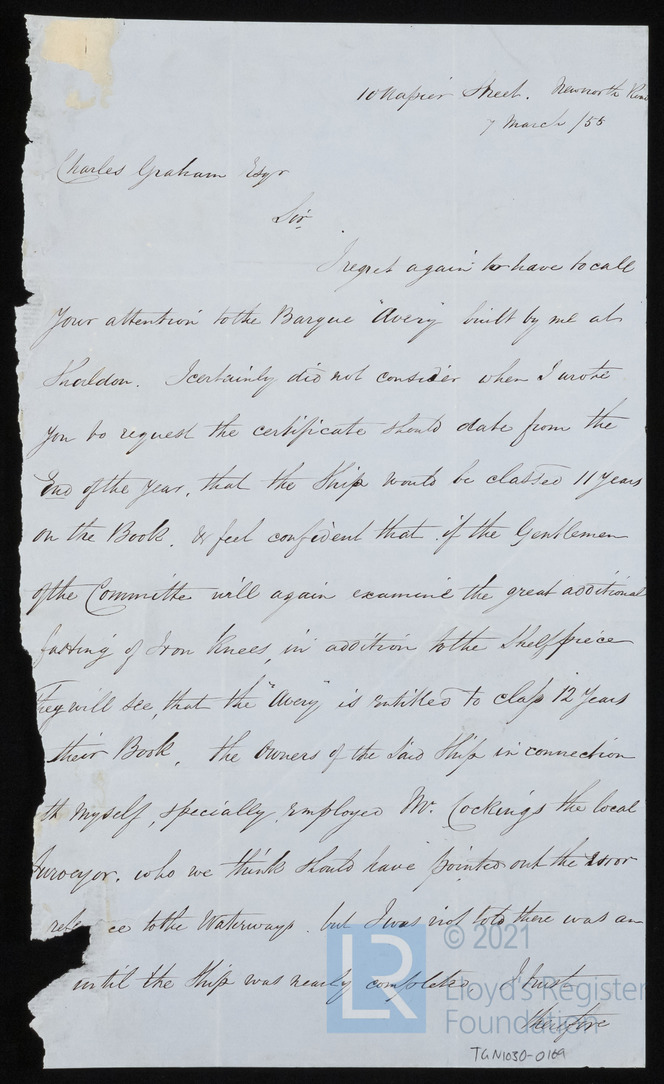 10 Napier Street. Newnorth Road
7 March /55
Charles Graham Esqr
Sir
I regret again to have to call
Your attention to the Barque "Avery" built by me at
Shaldon. I certainly did not consider when I wrote
you to request the certificate should date from the
End of the year, that the Ship would be classed 11 Years
on the Book. & feel confident that if the Gentlemen
of the Committe will again examine the great additional
fasting of Iron Knees, in addition to the Shelfpiece
They will see, that the "Avery" is entitled to class 12 Years
their Book. The Owners of the Said Ship in connection
th Myself, specially, employed Mr. Cockings the local
Surveyor. who we think should have pointed out the error
ref ce to the Waterways. but I was not told there was an
until the Ship was nearly completed. I trust
therefore
© 2021
LR
Lloyd's Register
Foundation
TGN1030-0169